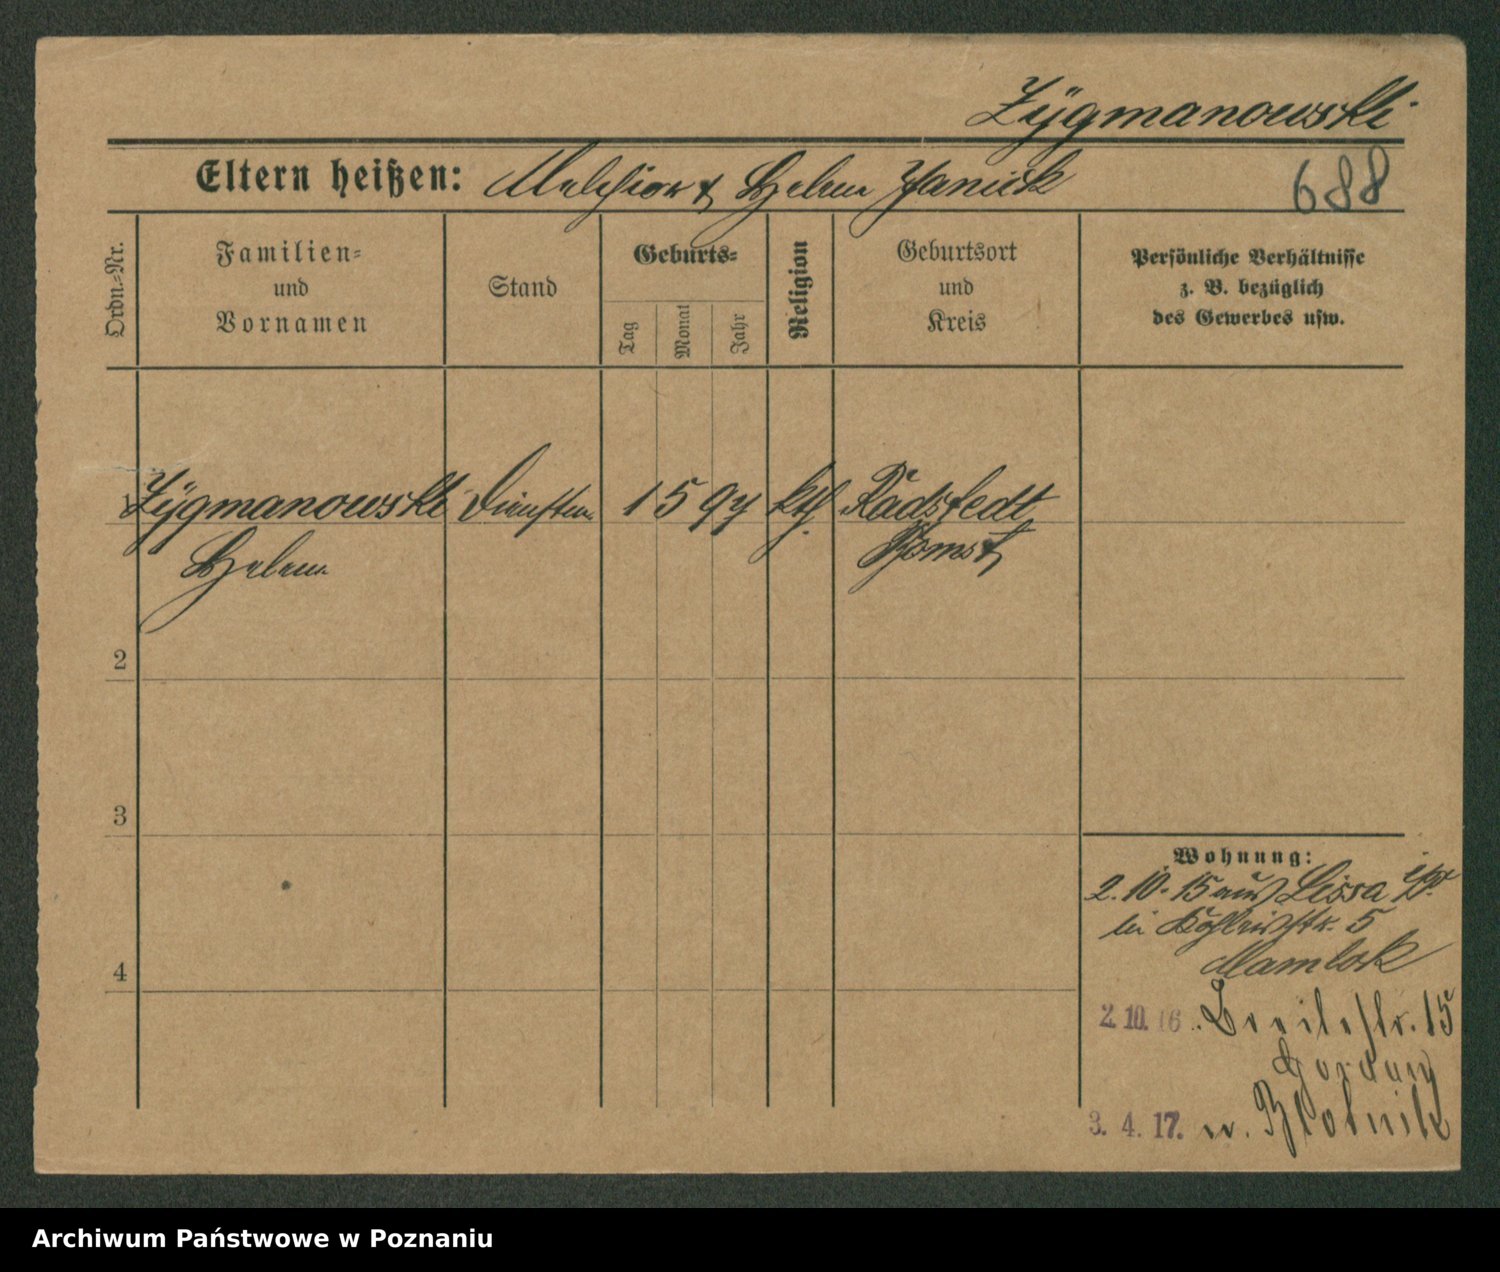 Zÿgmanowski
Eltern heißen: Melchior & Helene Janick
688
Ordn.-Nr.
Familien-
und
Vornamen
Stand
Geburts-
Tag
Monat
Jahr
Religion
Geburtsort
und
Kreis
Persönliche Verhältnisse
z. B. bezüglich
des Gewerbes usw.
1 Zÿgmanowski
Helene
1 5 97 kth.
Rådstedt
Bomst
2
3
4
Wohnung:
2. 10. 15 aus Lissa
bei 5
Mamlok
2. 10. 16. Breitestr. 15
3. 4. 17. n. Blotnik
Archiwum Państwowe w Poznaniu